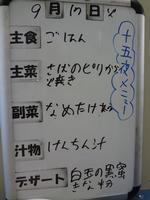 9月17日火
十五夜メニュー
主食 ごはん
主菜 さばのてりかけ
焼き
副菜 なめたけ和
汁物 けんちん汁
デザート 白玉の黒蜜
きな粉